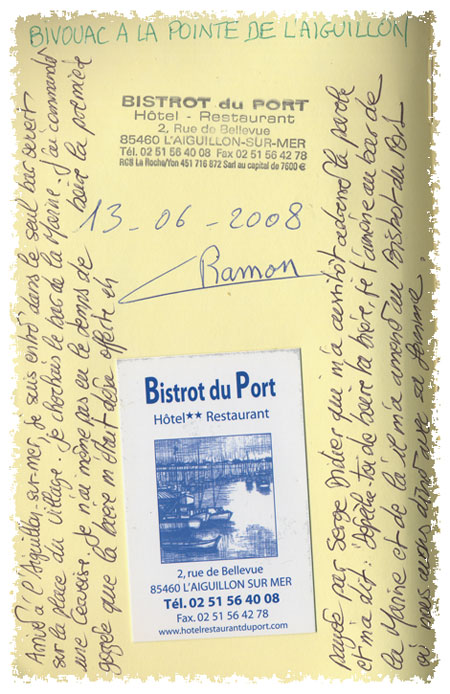 BIVOUAC A LA POINTE DE L'AIGUILLON
Arrivé à l'Aiguillon-sur-mer, je suis entré dans le seul bar ouvert
sur la place du village. Je cherchais le bar de la Marine. J'ai commandé
une Cervoise. Je n'ai même pas eu le temps de boire la première
gorgée que la bière m'était déjà offerte et
BISTROT du PORT
Hôtel - Restaurant
2, Rue de Bellevue
85460 L'AIGUILLON-SUR-MER
Tél. 02 51 56 40 08 Fax 02 51 56 42 78
RCS La Roche/Yon 451 716 872 Sarl au capital de 7600 €
13-06-2008
Ramon
Bistrot du Port
Hôtel★★ Restaurant
2, rue de Bellevue
85460 L'AIGUILLON SUR MER
Tél. 02 51 56 40 08
Fax. 02 51 56 42 78
www.hotelrestaurantduport.com
payée par Serge Didier qui m'a aussitôt adressé la parole
et m'a dit: Dépêche-toi de boire ta bière, je t'amène au bar de
la Marine et de là il m'a amené au Bistrot du Port
où nous avons dîné avec sa femme.